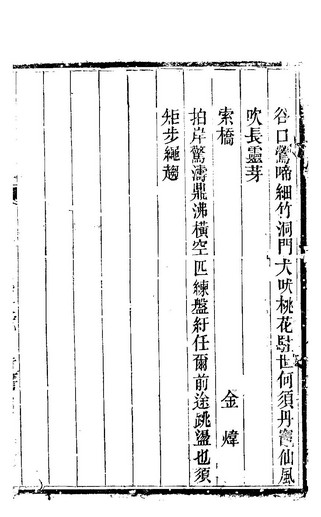 谷口鶯啼細竹洞門犬吠桃花駐世何須丹竈仙風
吹長靈芽
索橋 金煒
拍岸驚濤鼎沸橫空匹練盤紆任爾前途跳盪也須
矩步繩趨